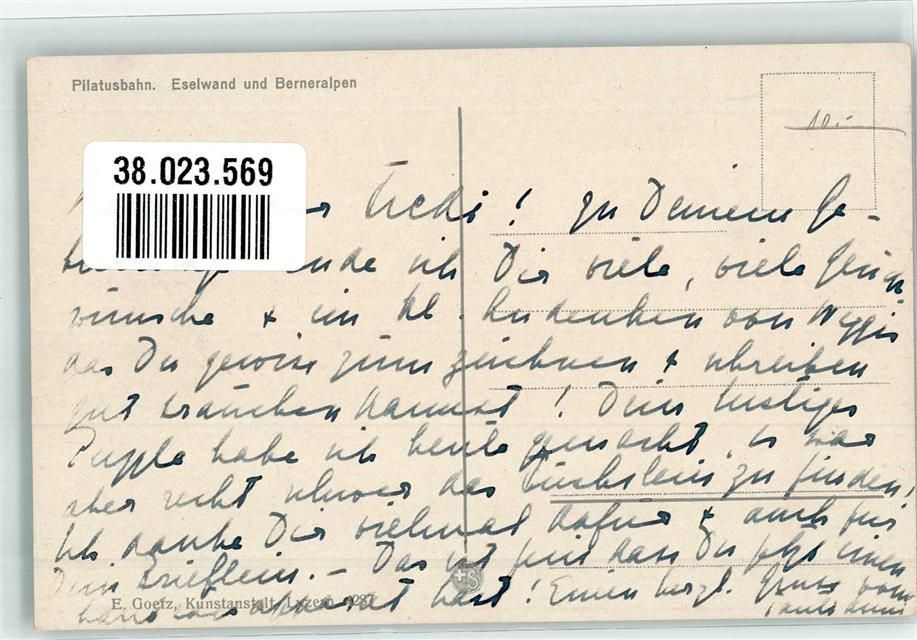 Pilatusbahn. Eselwand und Berneralpen
10.-
38.023.569
Fredi! Zu Deinem Ge-
ich Dir viele, viele Glück
wünsche & ein kl. Andenken von Weggis
das Du gewiss zum zeichnen & schreiben
gut brauchen kannst! Dein lustiges
Puzzle habe ich heute gemacht, es war
aber recht schwer das Füchslein zu finden!
Ich danke Dir vielmal dafür & auch für
Dein Brieflein. – Das ist fein dass Du jetzt einen
hast! Einen herzl. Gruss vom
E. Goetz, Kunstanstalt, Luzern